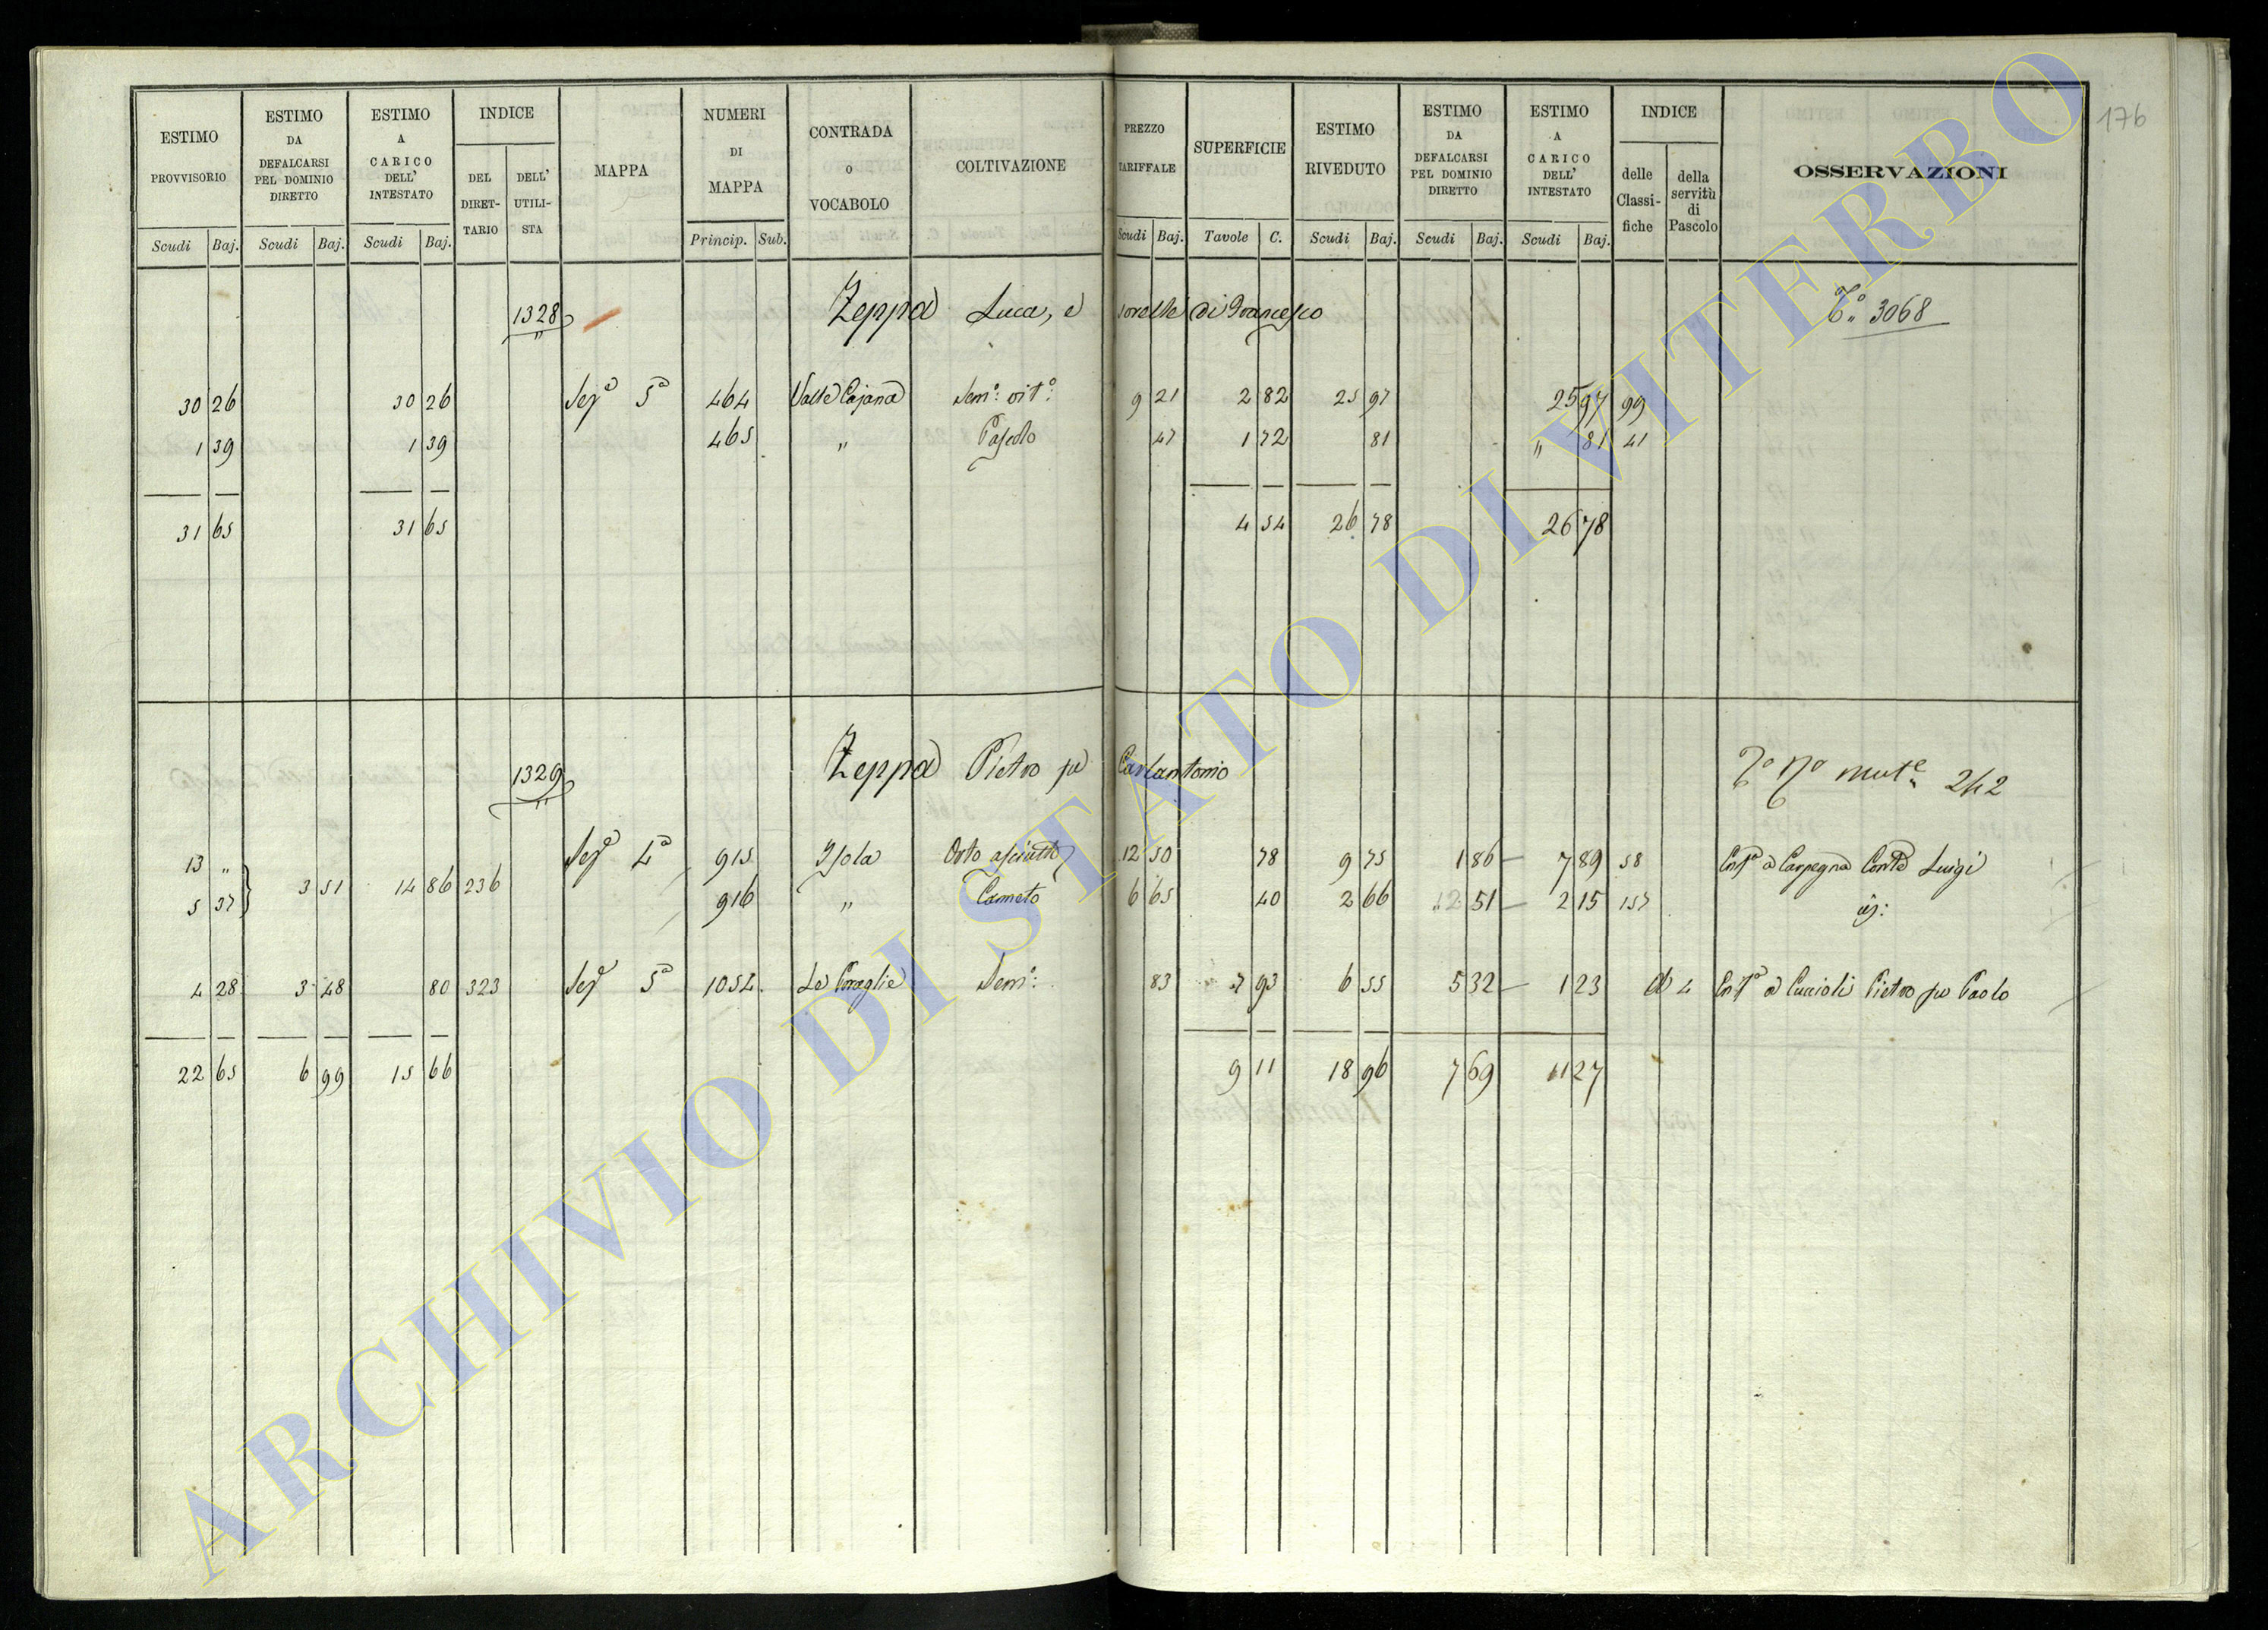 176
ESTIMO PROVVISORIO Scudi Baj.
ESTIMO DA DEFALCARSI PEL DOMINIO DIRETTO Scudi Baj.
ESTIMO A CARICO DELL' INTESTATO Scudi Baj.
INDICE DEL DIRET-TARIO DELL' UTILI-STA
MAPPA
NUMERI DI MAPPA Princip. Sub.
CONTRADA o VOCABOLO
COLTIVAZIONE
PREZZO TARIFFALE Scudi Baj.
SUPERFICIE Tavole C.
ESTIMO RIVEDUTO Scudi Baj.
ESTIMO DA DEFALCARSI PEL DOMINIO DIRETTO Scudi Baj.
ESTIMO A CARICO DELL' INTESTATO Scudi Baj.
INDICE delle Classi-fiche della servitù di Pascolo
OSSERVAZIONI
1328 Zeppa Luca, e sorelle di Francesco 3068
30 26 30 26 Sez.e 5a 464 Valle Cajana Sem.o vit.o: 9 21 2 82 25 97 25 97 99
1 39 1 39 465 " Pascolo 47 1 72 81 " 81 41
31 65 31 65 4 54 26 78 26 78
1329 Zeppa Pietro fu Carlantonio 242
13 " Sez.e 4a 915 Isola Orto asciutto 12 50 78 9 75 1 86 7 89 58 Enf.a a Carpegna Conte Luigi
5 37 3 51 14 86 236 916 " Canneto 6 65 40 2 66 2 51 2 15 157
4 28 3 48 80 323 Sez.e 5a 1054 Sem.o: 83 7 93 6 55 5 32 1 23 4 Enf.a a Luccioli Pietro fu Paolo
22 65 6 99 15 66 9 11 18 96 7 69 11 27
ARCHIVIO DI STATO DI VITERBO